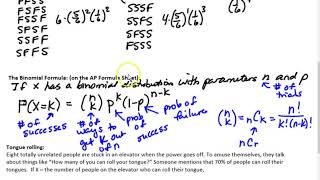 FSSF
SFFS
SFSF
SFFS
6·(5/6)²(1/6)²
SSSF
SSFS
SFSS
FSSS
4(5/6)¹(1/6)³
The Binomial Formula: (on the AP Formula Sheet)
If X has a binomial distribution with parameters n and p
P(X=k) = (n k) p^k (1-p)^n-k
# of successes
# of ways to get k out of n
prob of success
prob of failure
# of failures
# of trials
(n k) = nCk = n! / k!(n-k)!
nCr
Tongue rolling:
Eight totally unrelated people are stuck in an elevator when the power goes off. To amuse themselves, they
talk about things like "How many of you can roll your tongue?" Someone mentions that 70% of people can roll their
tongues. If X = the number of people on the elevator who can roll their tongue,